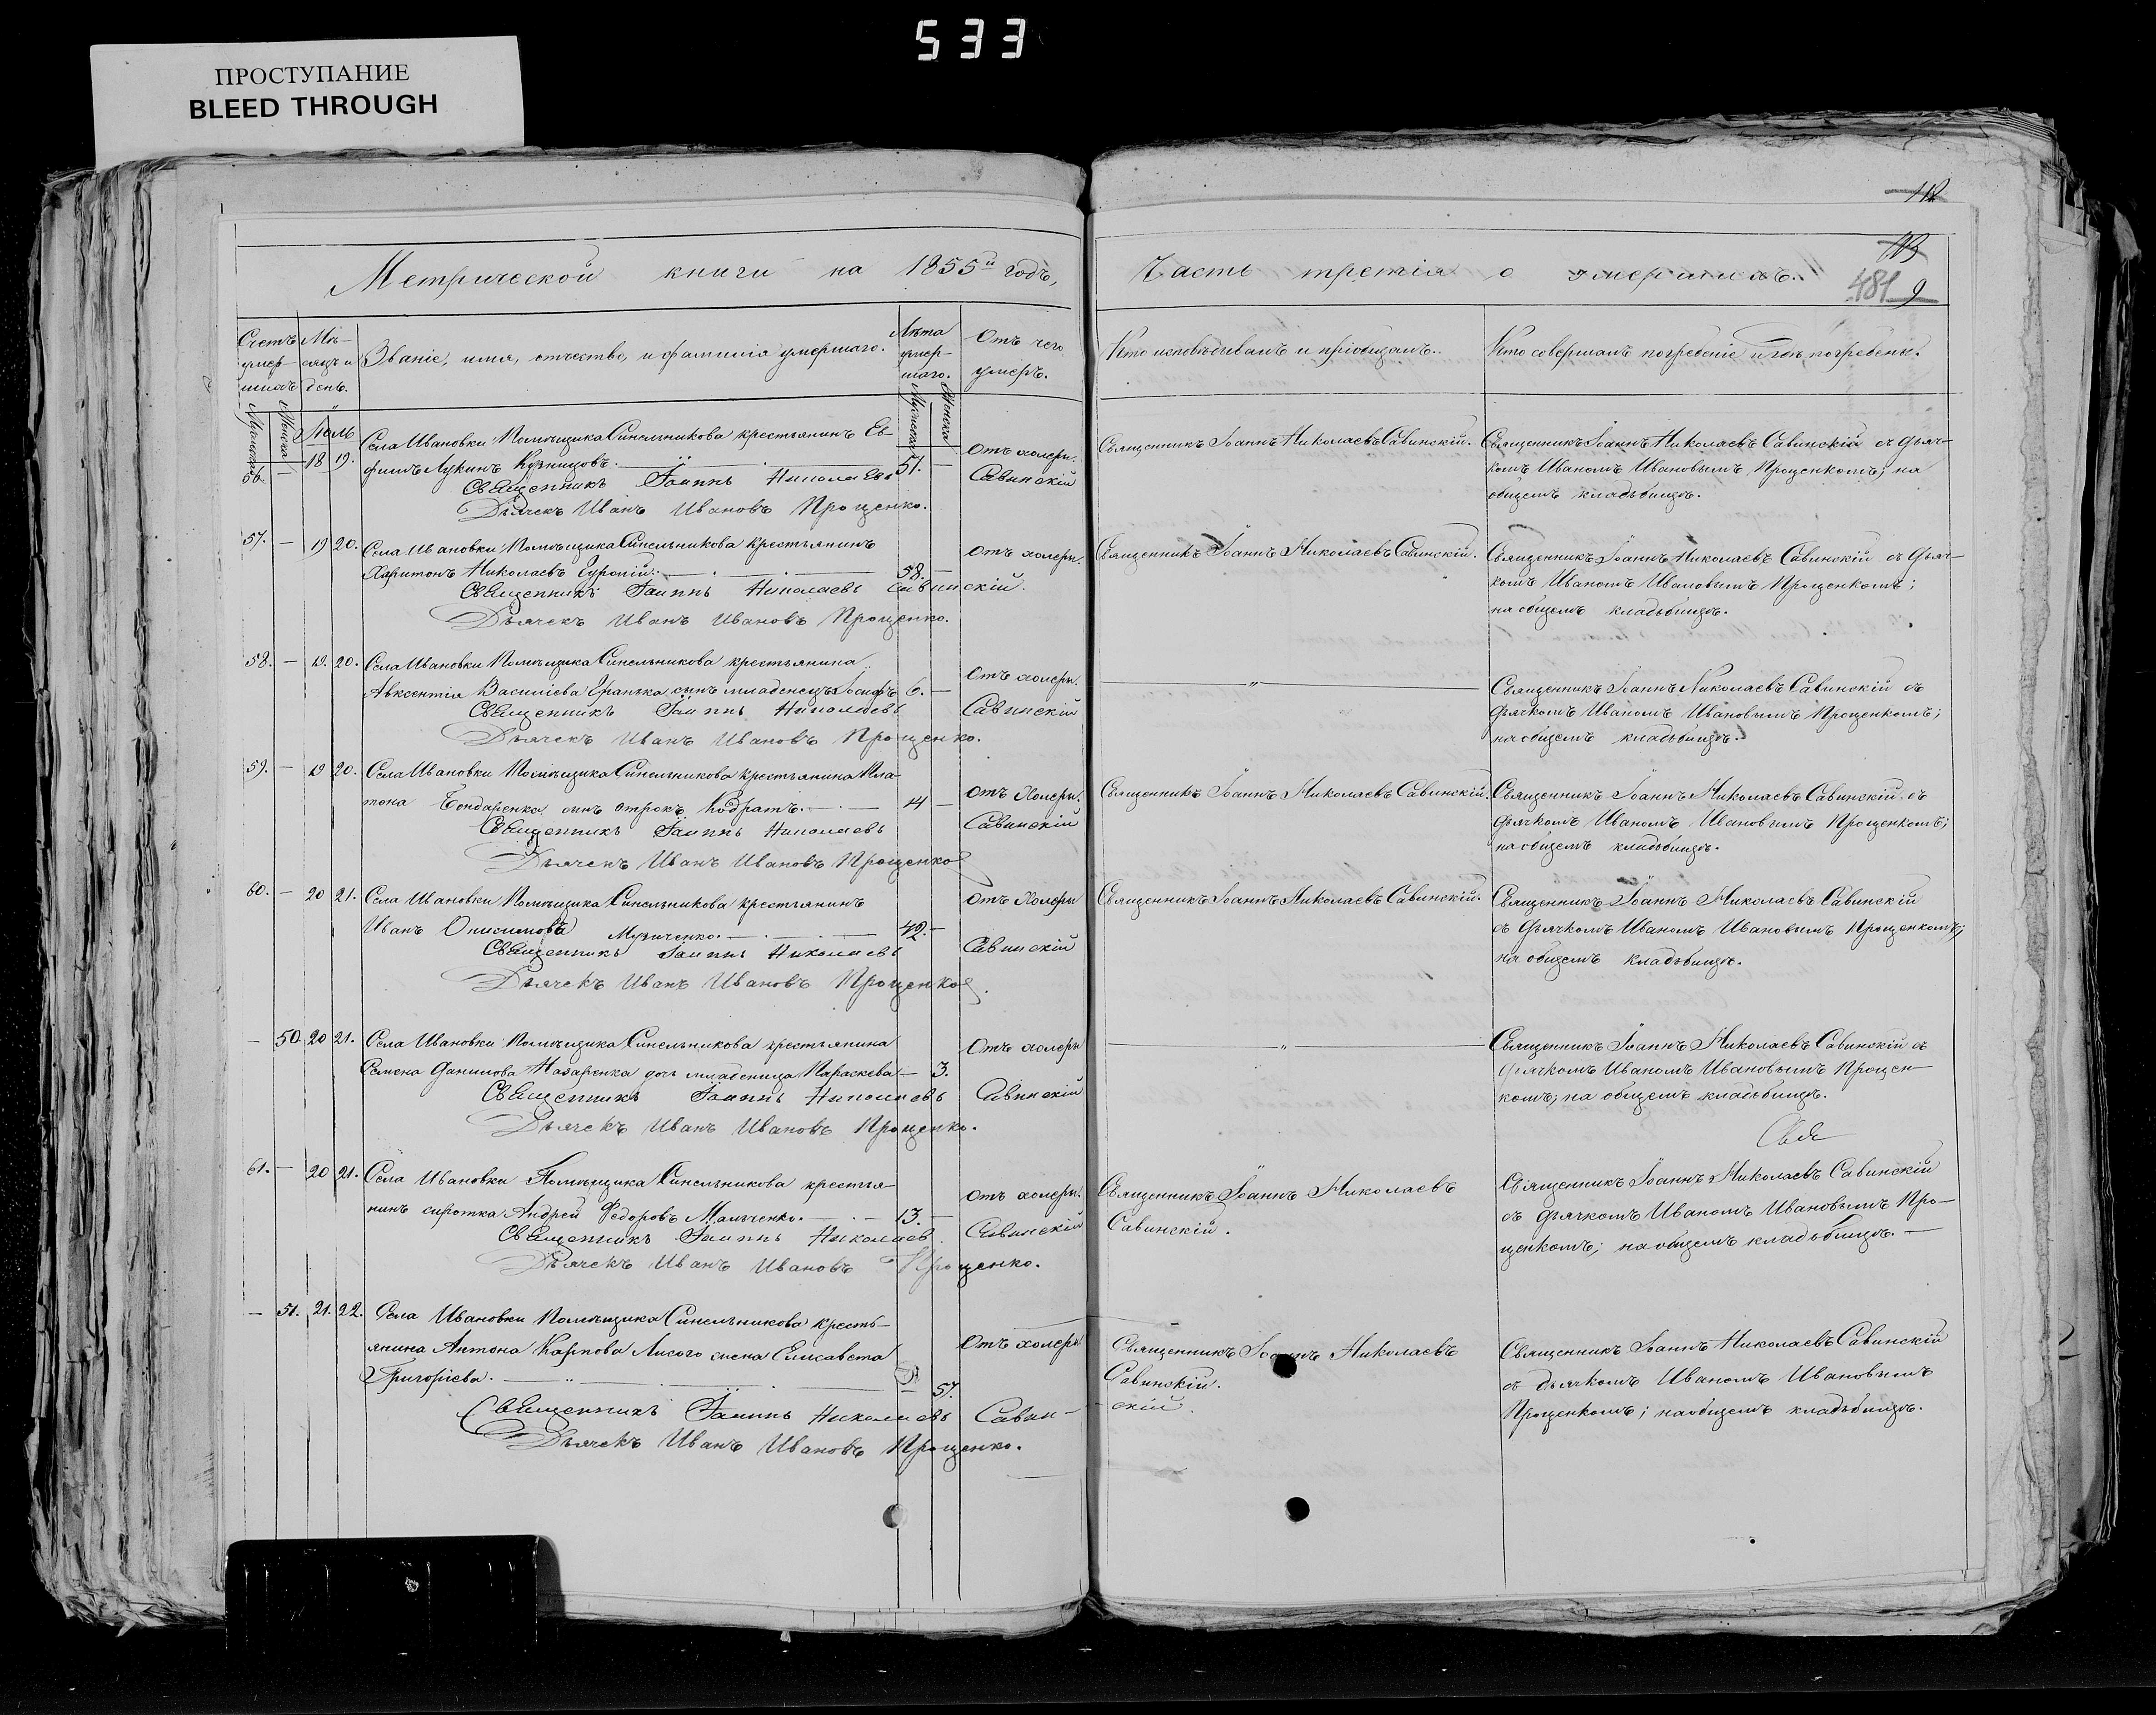 533
ПРОСТУПАНИЕ
BLEED THROUGH
112
113
481 9
Метрической книги на 1855й годъ,
Часть третія о умершихъ.
Счетъ умер-шихъ
Мужеска
Женска
Мѣ-сяцъ и день.
Званіе, имя, отчество, и фамилія умершаго.
Лѣта умер-шаго.
Мужеска
Женска
Отъ чего умеръ.
Кто исповѣдывалъ и пріобщалъ.
Кто совершалъ погребеніе и гдѣ погребены.
Іюль
56. — 18 19. Села Ивановки Помѣщика Синельникова крестьянинъ Ев-
фимъ Лукинъ Кузницовъ. 51. — Отъ холеры.
Священникъ Іоаннъ Николаевъ Савинскій
Дьячекъ Иванъ Ивановъ Проценко.
Священникъ Іоаннъ Николаевъ Савинскій.
Священникъ Іоаннъ Николаевъ Савинскій съ дьяч-
комъ Иваномъ Ивановымъ Проценкомъ; на
общемъ кладьбищѣ.
57. — 19 20. Села Ивановки Помѣщика Синельникова крестьянинъ
Харитонъ Николаевъ 58. — Отъ холеры.
Священникъ Іоаннъ Николаевъ Савинскій.
Дьячекъ Иванъ Ивановъ Проценко.
Священникъ Іоаннъ Николаевъ Савинскій.
Священникъ Іоаннъ Николаевъ Савинскій съ дьяч-
комъ Иваномъ Ивановымъ Проценкомъ;
на общемъ кладьбищѣ.
58. — 19. 20. Села Ивановки Помѣщика Синельникова крестьянина
Авксентія Василіева Гранька сынъ младенецъ Іосифъ 6. — Отъ холеры.
Священникъ Іоаннъ Николаевъ Савинскій
Дьячекъ Иванъ Ивановъ Проценко.
— " —
Священникъ Іоаннъ Николаевъ Савинскій съ
дьячкомъ Иваномъ Ивановымъ Проценкомъ;
на общемъ кладьбищѣ.
59. — 19 20. Села Ивановки Помѣщика Синельникова крестьянина Пла-
тона Бондаренка сынъ отрокъ Кодратъ. 14 — Отъ Холеры.
Священникъ Іоаннъ Николаевъ Савинскій
Дьячекъ Иванъ Ивановъ Проценко
Священникъ Іоаннъ Николаевъ Савинскій.
Священникъ Іоаннъ Николаевъ Савинскій съ
дьячкомъ Иваномъ Ивановымъ Проценкомъ;
на общемъ кладьбищѣ.
60. — 20 21. Села Ивановки Помѣщика Синельникова крестьянинъ
Иванъ Онисимовъ Музиченко. 42. — Отъ Холеры
Священникъ Іоаннъ Николаевъ Савинскій
Дьячекъ Иванъ Ивановъ Проценко.
Священникъ Іоаннъ Николаевъ Савинскій.
Священникъ Іоаннъ Николаевъ Савинскій
съ дьячкомъ Иваномъ Ивановымъ Проценкомъ;
на общемъ кладьбищѣ.
— 50 20 21. Села Ивановки Помѣщика Синельникова крестьянина
Семена Данилова Назаренка дочь младеница Параскева — 3. Отъ холеры
Священникъ Іоаннъ Николаевъ Савинскій
Дьячекъ Иванъ Ивановъ Проценко.
— " —
Священникъ Іоаннъ Николаевъ Савинскій съ
дьячкомъ Иваномъ Ивановымъ Процен-
комъ; на общемъ кладьбищѣ.
61. — 20 21. Села Ивановки Помѣщика Синельникова крестья-
нинъ сиротка Андрей Федоровъ 13. — Отъ холеры.
Священникъ Іоаннъ Николаев. Савинскій
Дьячекъ Иванъ Ивановъ Проценко.
Священникъ Іоаннъ Николаевъ
Савинскій.
Священникъ Іоаннъ Николаевъ Савинскій
съ дьячкомъ Иваномъ Ивановымъ Про-
ценкомъ; на общемъ кладьбищѣ. —
— 51. 21. 22. Села Ивановки Помѣщика Синельникова кресть-
янина Антона Карпова Лисого жена Елисавета
Григоріева. — 57. Отъ холеры
Священникъ Іоаннъ Николаевъ Савин-скій.
Дьячекъ Иванъ Ивановъ Проценко.
Священникъ Іоаннъ Николаевъ
Савинскій.
Священникъ Іоаннъ Николаевъ Савинскій
съ дьячкомъ Иваномъ Ивановымъ
Проценкомъ; на общемъ кладьбищѣ.